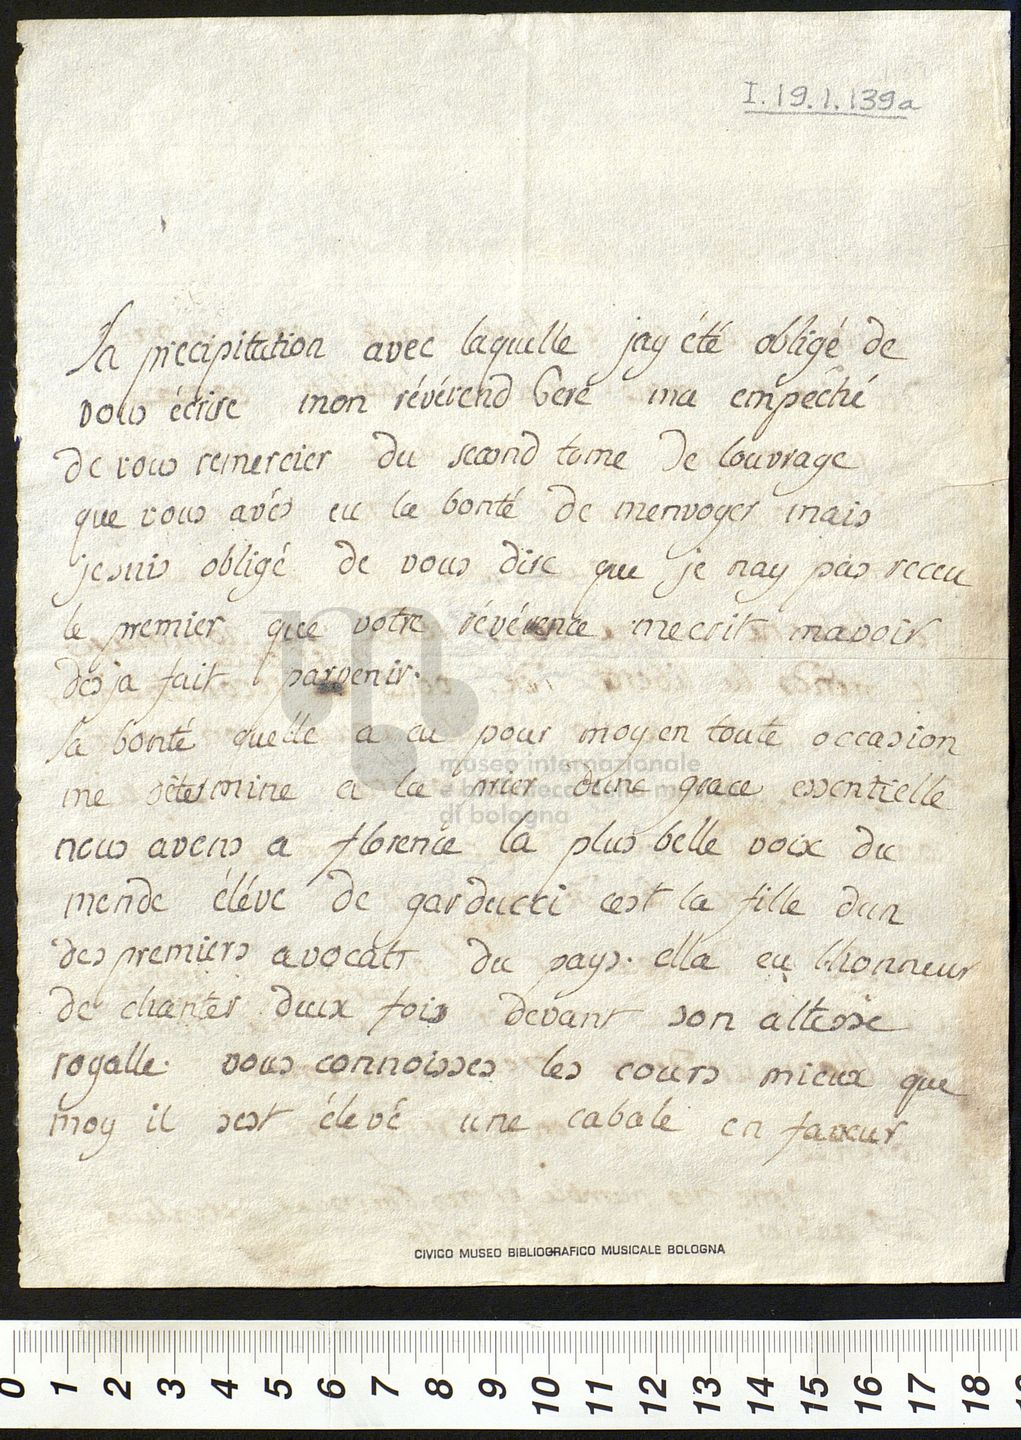 I.19.1.139a
La precipitation avec laquelle jay été obligé de
vous écrire mon révérend Pere ma empéché
de vous remercier du second tome de louvrage
que vous avés eu la bonté de menvoyer mais
jesuis obligé de vous dire que je nay pas receu
le premier que votre révérence mecrit mavoir
desja fait parvenir.
La bonté quelle a eu pour moy en toute occasion
me determine a la prier dune grace essentielle
nous avons a florence la plus belle voix du
monde éléve de garducci cest la fille dun
des premiers avocats du pays. ella eu lhonneur
de chanter deux fois devant son altesse
royalle. vous connoisses les cours mieux que
moy il sest élevé une cabale en faveur
museo internazionale
e biblioteca della musica
di bologna
CIVICO MUSEO BIBLIOGRAFICO MUSICALE BOLOGNA
0 1 2 3 4 5 6 7 8 9 10 11 12 13 14 15 16 17 18